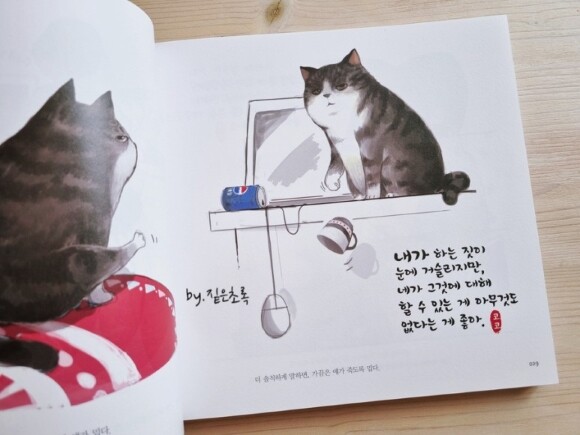 by. 짙은초록
내가 하는 짓이
눈에 거슬리지만,
네가 그것에 대해
할 수 있는 게 아무것도
없다는 게 좋아.
코코
더 솔직하게 말하면, 가끔은 얘가 죽도록 밉다.
029
밉다.